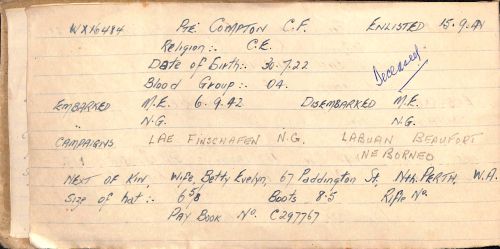 WX16484 Pte. COMPTON C.F. ENLISTED 15.9.41
Religion:. C.E.
Date of Birth:. 30.7.22
Deceased.
Blood Group:. O4.
EMBARKED M.E. 6.9.42 DISEMBARKED M.E.
" N.G. N.G.
CAMPAIGNS LAE FINSCHAFEN N.G. LABUAN BEAUFORT
" NE BORNEO
NEXT OF KIN Wife, Betty Evelyn, 67 Paddington St, Nth. PERTH, W.A.
Size of hat:. 6 5/8 Boots 8.5 Rifle No.
PAY BOOK No. C297767